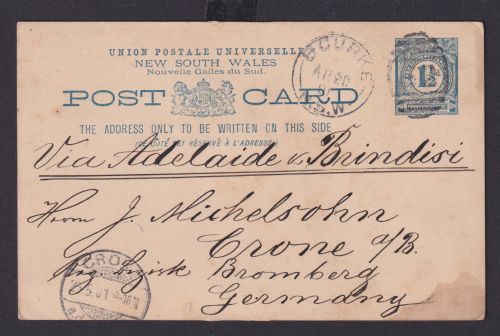 UNION POSTALE UNIVERSELLE.
NEW SOUTH WALES
Nouvelle Galles du Sud.
POST CARD
THE ADDRESS ONLY TO BE WRITTEN ON THIS SIDE
(CE CÔTÉ EST RÉSERVÉ À L'ADRESSE)
BOURKE
N.S.W
1½
Via Adelaide & Brindisi
Herrn J. Michelsohn
Crone a/B.
Bromberg
Germany
CRONE